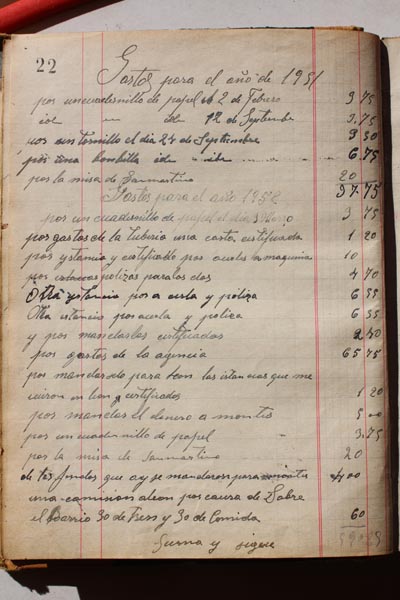 22
Gastos para el año de 1951
por un cuadernillo de papel el 2 de Febrero 3.75
id un id 12 de Septembre 3.75
por un tornillo el dia 24 de Septiembre 3 50
por una bombilla id 6.75
por la misa de Sanmartino 20
37.75
Gastos para el año 1952
por un cuadernillo de papel el dia 3 3 75
por gastos de la tuberia una carta certificada 1 20
por ystancia y certificado por la maquina 10
por polizas para las dos 4 70
Otra ystancia por a y poliza 6 55
Otra istancia por y poliza 6 55
y por mandarlas certificadas 2 40
por gastos de la agencia 65 75
por mandarado para las istancias que me
en y certificados 1 20
por mandar el denero a montes 5 00
por un cuadernillo de papel 3.75
por la misa de Sanmartino 20
de los fondos que ay se mandaron para
una camision a leon por causa de
el Barrio 30 de Tren y 30 de Comida 60
Suma y sigue